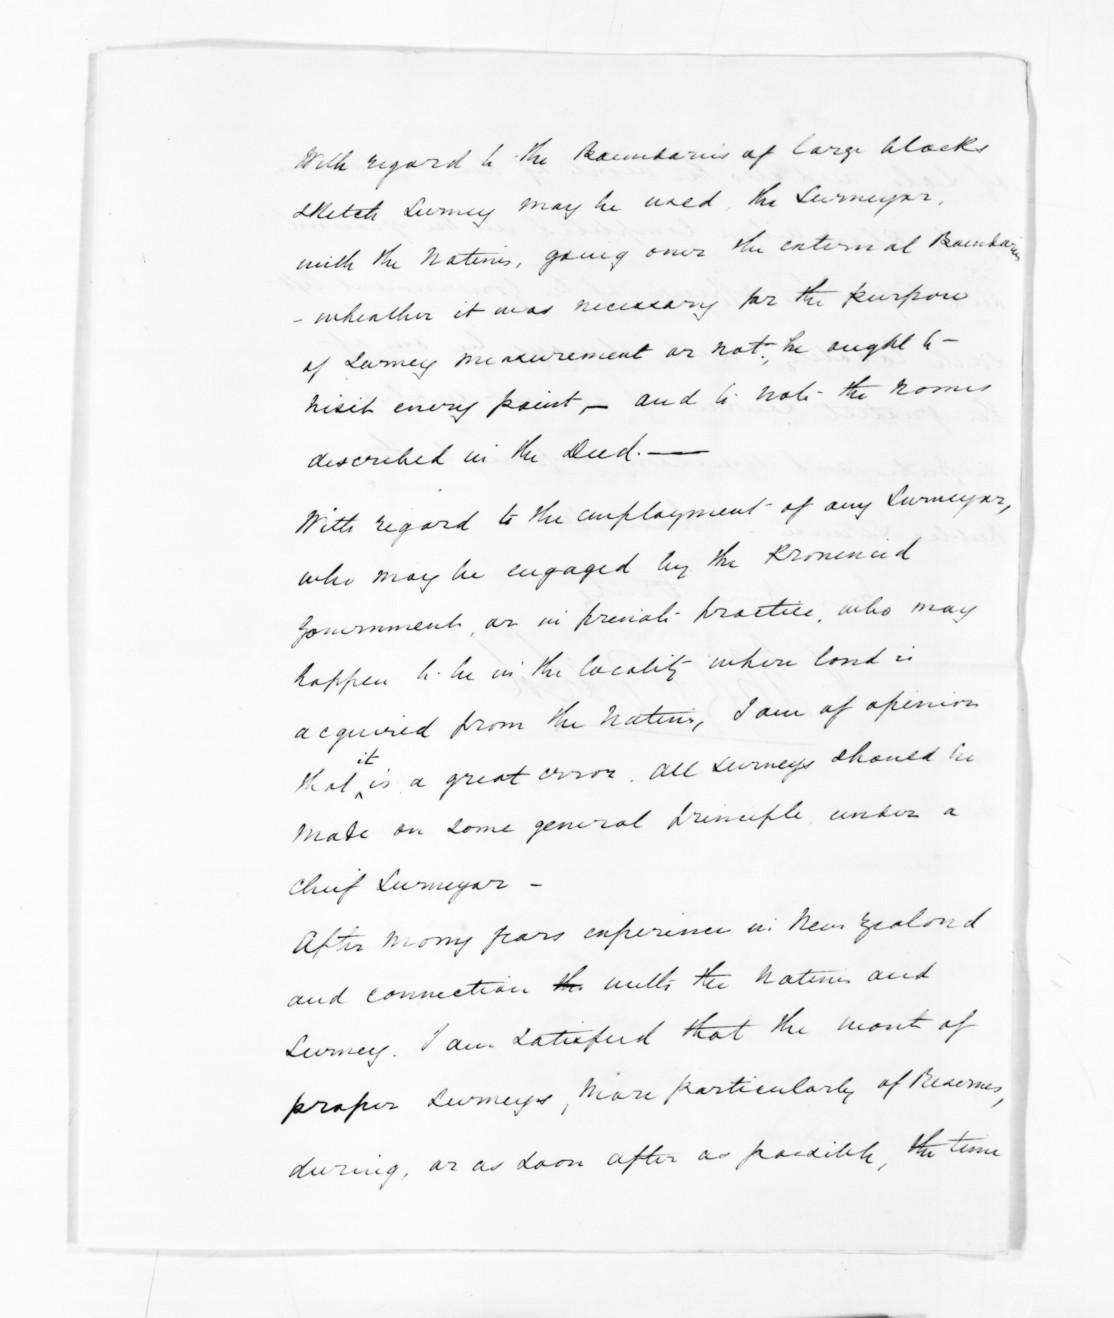 With regard to the Boundaries of large blocks
sketch Survey may be used, the Surveyor,
with the Natives, going over the external Boundaries
- wheather it was necessary for the purpose
of Survey measurement or not; he ought to
visit every point, — and to note the names
described in the Deed. —
With regard to the employment of any Surveyor,
who may be engaged by the Provincial
Government, or in private practice, who may
happen to be in the locality where land is
acquired from the Natives, I am of opinion
that it is a great error. All surveys should be
made on some general principle, under a
Chief Surveyor -
After many years experience in New Zealand
and connection the with the Natives and
Survey. I am satisfied that the want of
proper surveys, more particularly of Reserves,
during, or as soon after as possible, the time